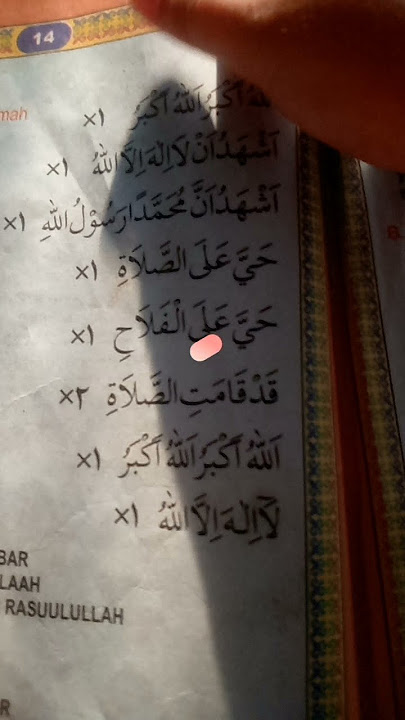 14
mah
اَللهُ اَكْبَرُ اَللهُ اَكْبَرُ ×١
اَشْهَدُ اَنْ لَا اِلٰهَ اِلَّا اللهُ ×١
اَشْهَدُ اَنَّ مُحَمَّدًا رَسُوْلُ اللهِ ×١
حَيَّ عَلَى الصَّلَاةِ ×١
حَيَّ عَلَى الْفَلَاحِ ×١
قَدْ قَامَتِ الصَّلَاةِ ×٢
اَللهُ اَكْبَرُ اَللهُ اَكْبَرُ ×١
لَا اِلٰهَ اِلَّا اللهُ ×١
BAR
LAAH
RASUULULLAH
R
B.